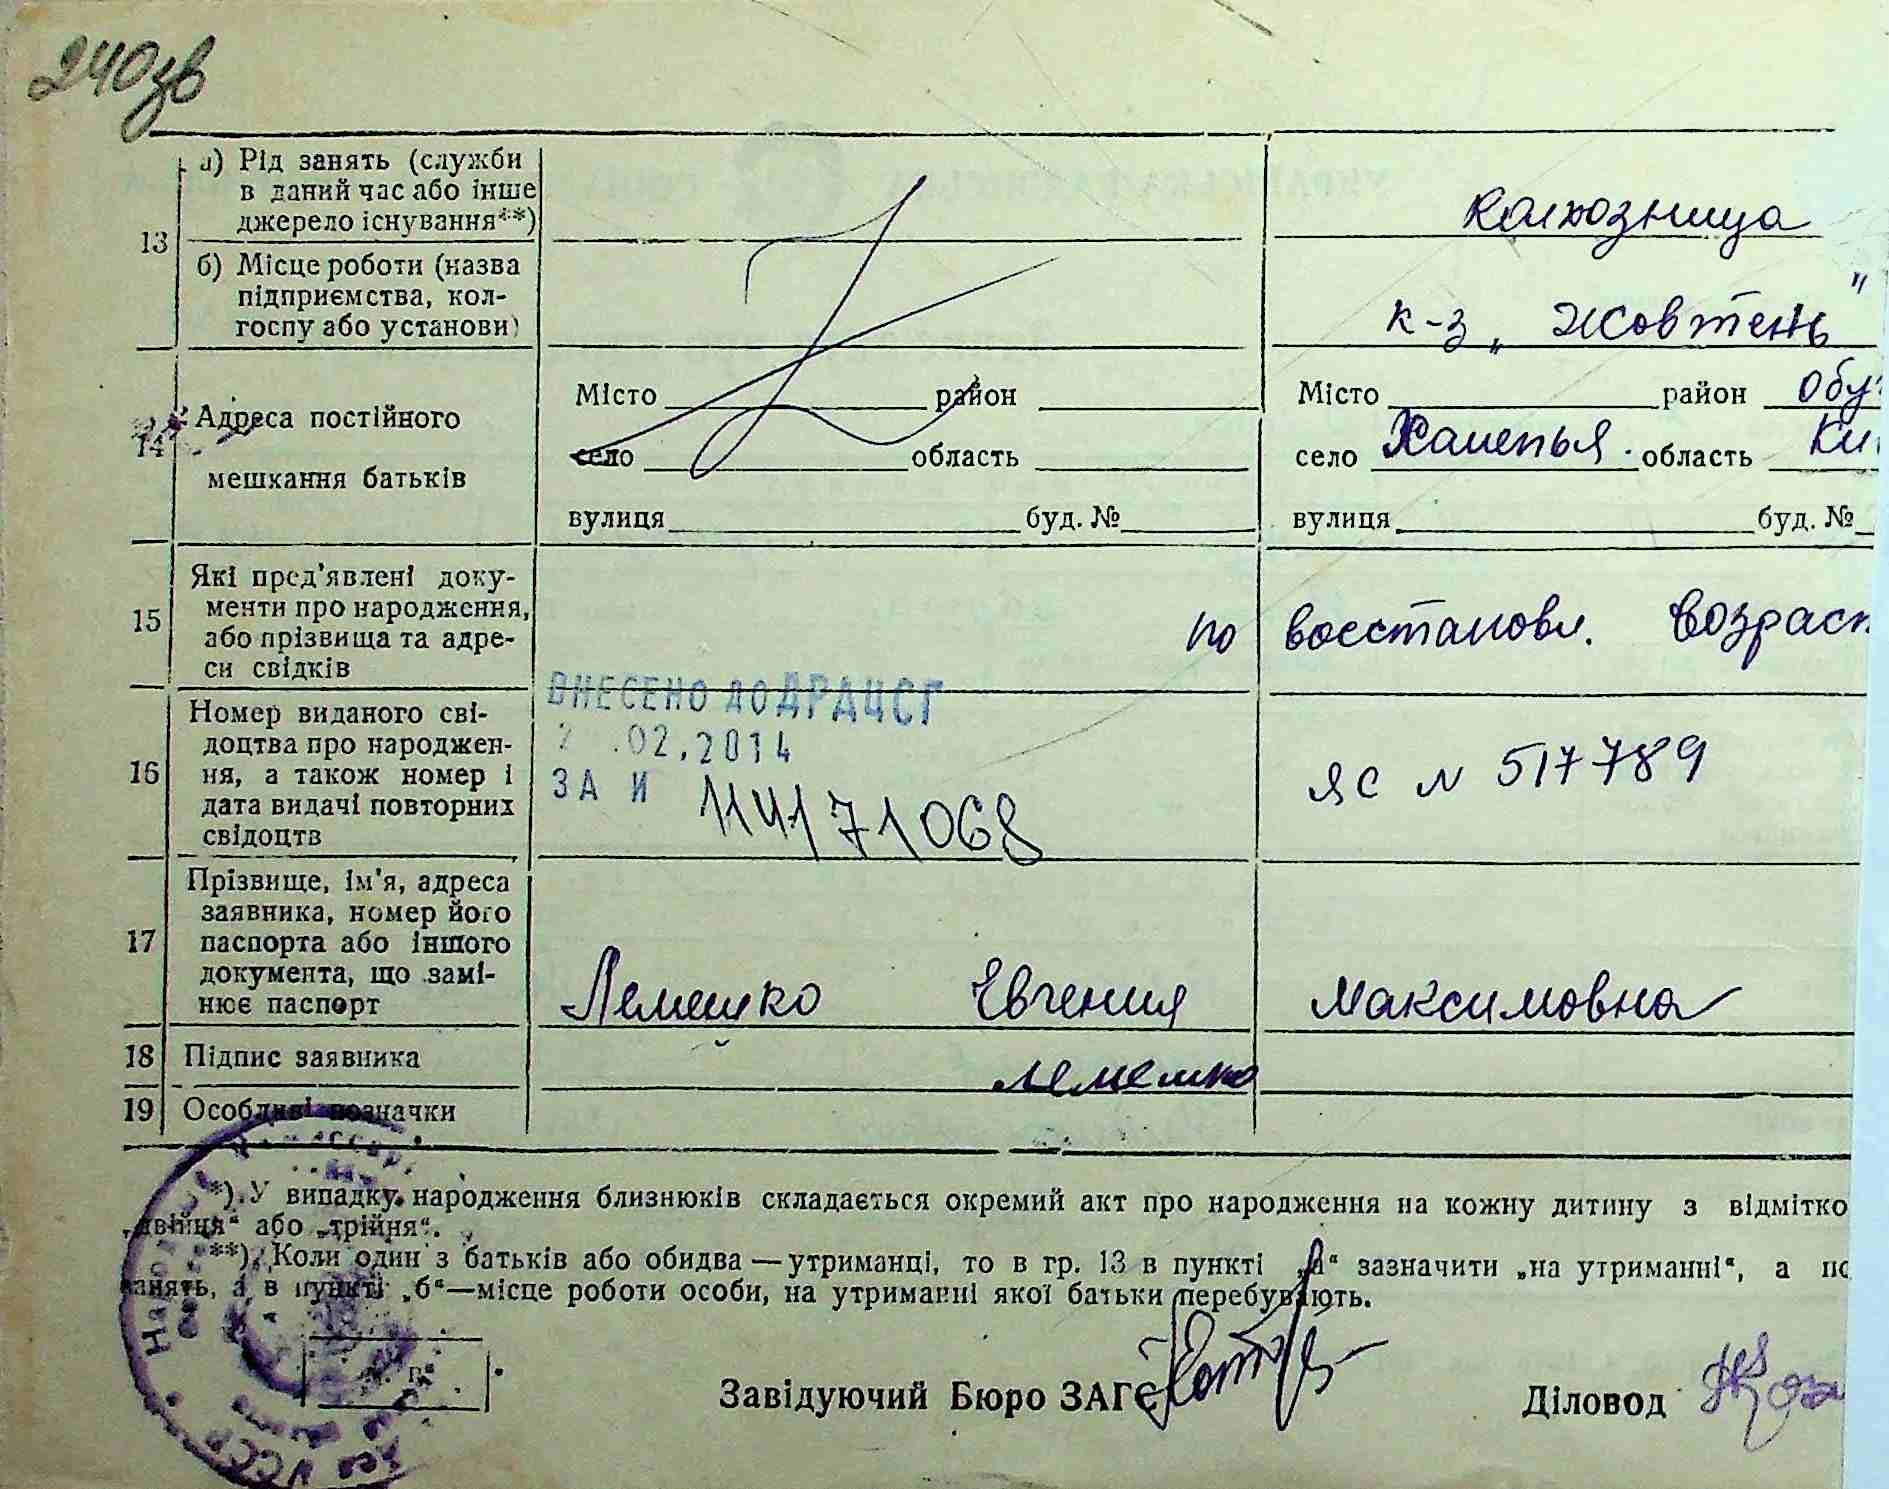 240зв
13 а) Рід занять (служби
в даний час або інше
джерело існування**)
колхозница
б) Місце роботи (назва
підприємства, кол-
госпу або установи)
к-з „Жовтень"
14 Адреса постійного
мешкання батьків
Місто район
село область
вулиця буд. №
Місто район Обу
село Халепья. область Ки
вулиця буд. №
15 Які пред'явлені доку-
менти про народження,
або прізвища та адре-
си свідків
по восстановл. возраст
16 Номер виданого сві-
доцтва про народжен-
ня, а також номер і
дата видачі повторних
свідоцтв
ВНЕСЕНО ДО ДРАЦСГ
.02.2014
ЗА И 114171068
ЯС N 517789
17 Прізвище, ім'я, адреса
заявника, номер його
паспорта або іншого
документа, що замі-
нює паспорт
Лемешко Евгения Максимовна
18 Підпис заявника
Лемешко
19 Особливі позначки
*) У випадку народження близнюків складається окремий акт про народження на кожну дитину з відмітко
„двійня“ або „трійня“.
**) Коли один з батьків або обидва—утриманці, то в гр. 13 в пункті „а“ зазначити „на утриманні“, а по
занять, а в пункті „б“—місце роботи особи, на утриманні якої батьки перебувають.
Завідуючий Бюро ЗАГС
Діловод